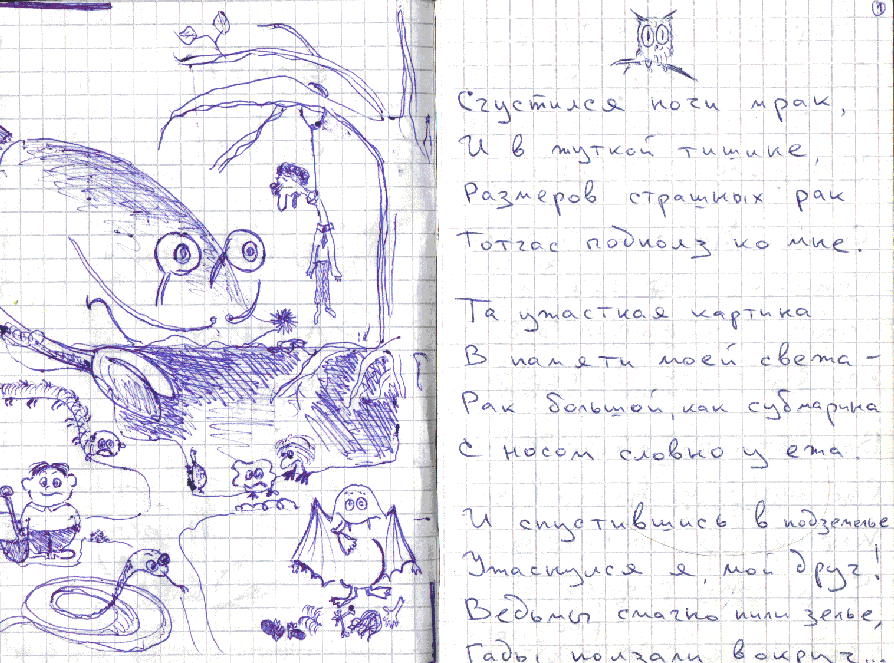 1
Сгустился ночи мрак,
И в жуткой тишине,
Размеров страшных рак
Тотчас подполз ко мне.
Та ужасткая картина
В памяти моей свежа –
Рак большой, как субмарина
С носом словно у ежа.
И спустившись в подземелье
Ужаснулся я, мой друг!
Ведьмы смачно пили зелье,
Гады ползали вокруг...